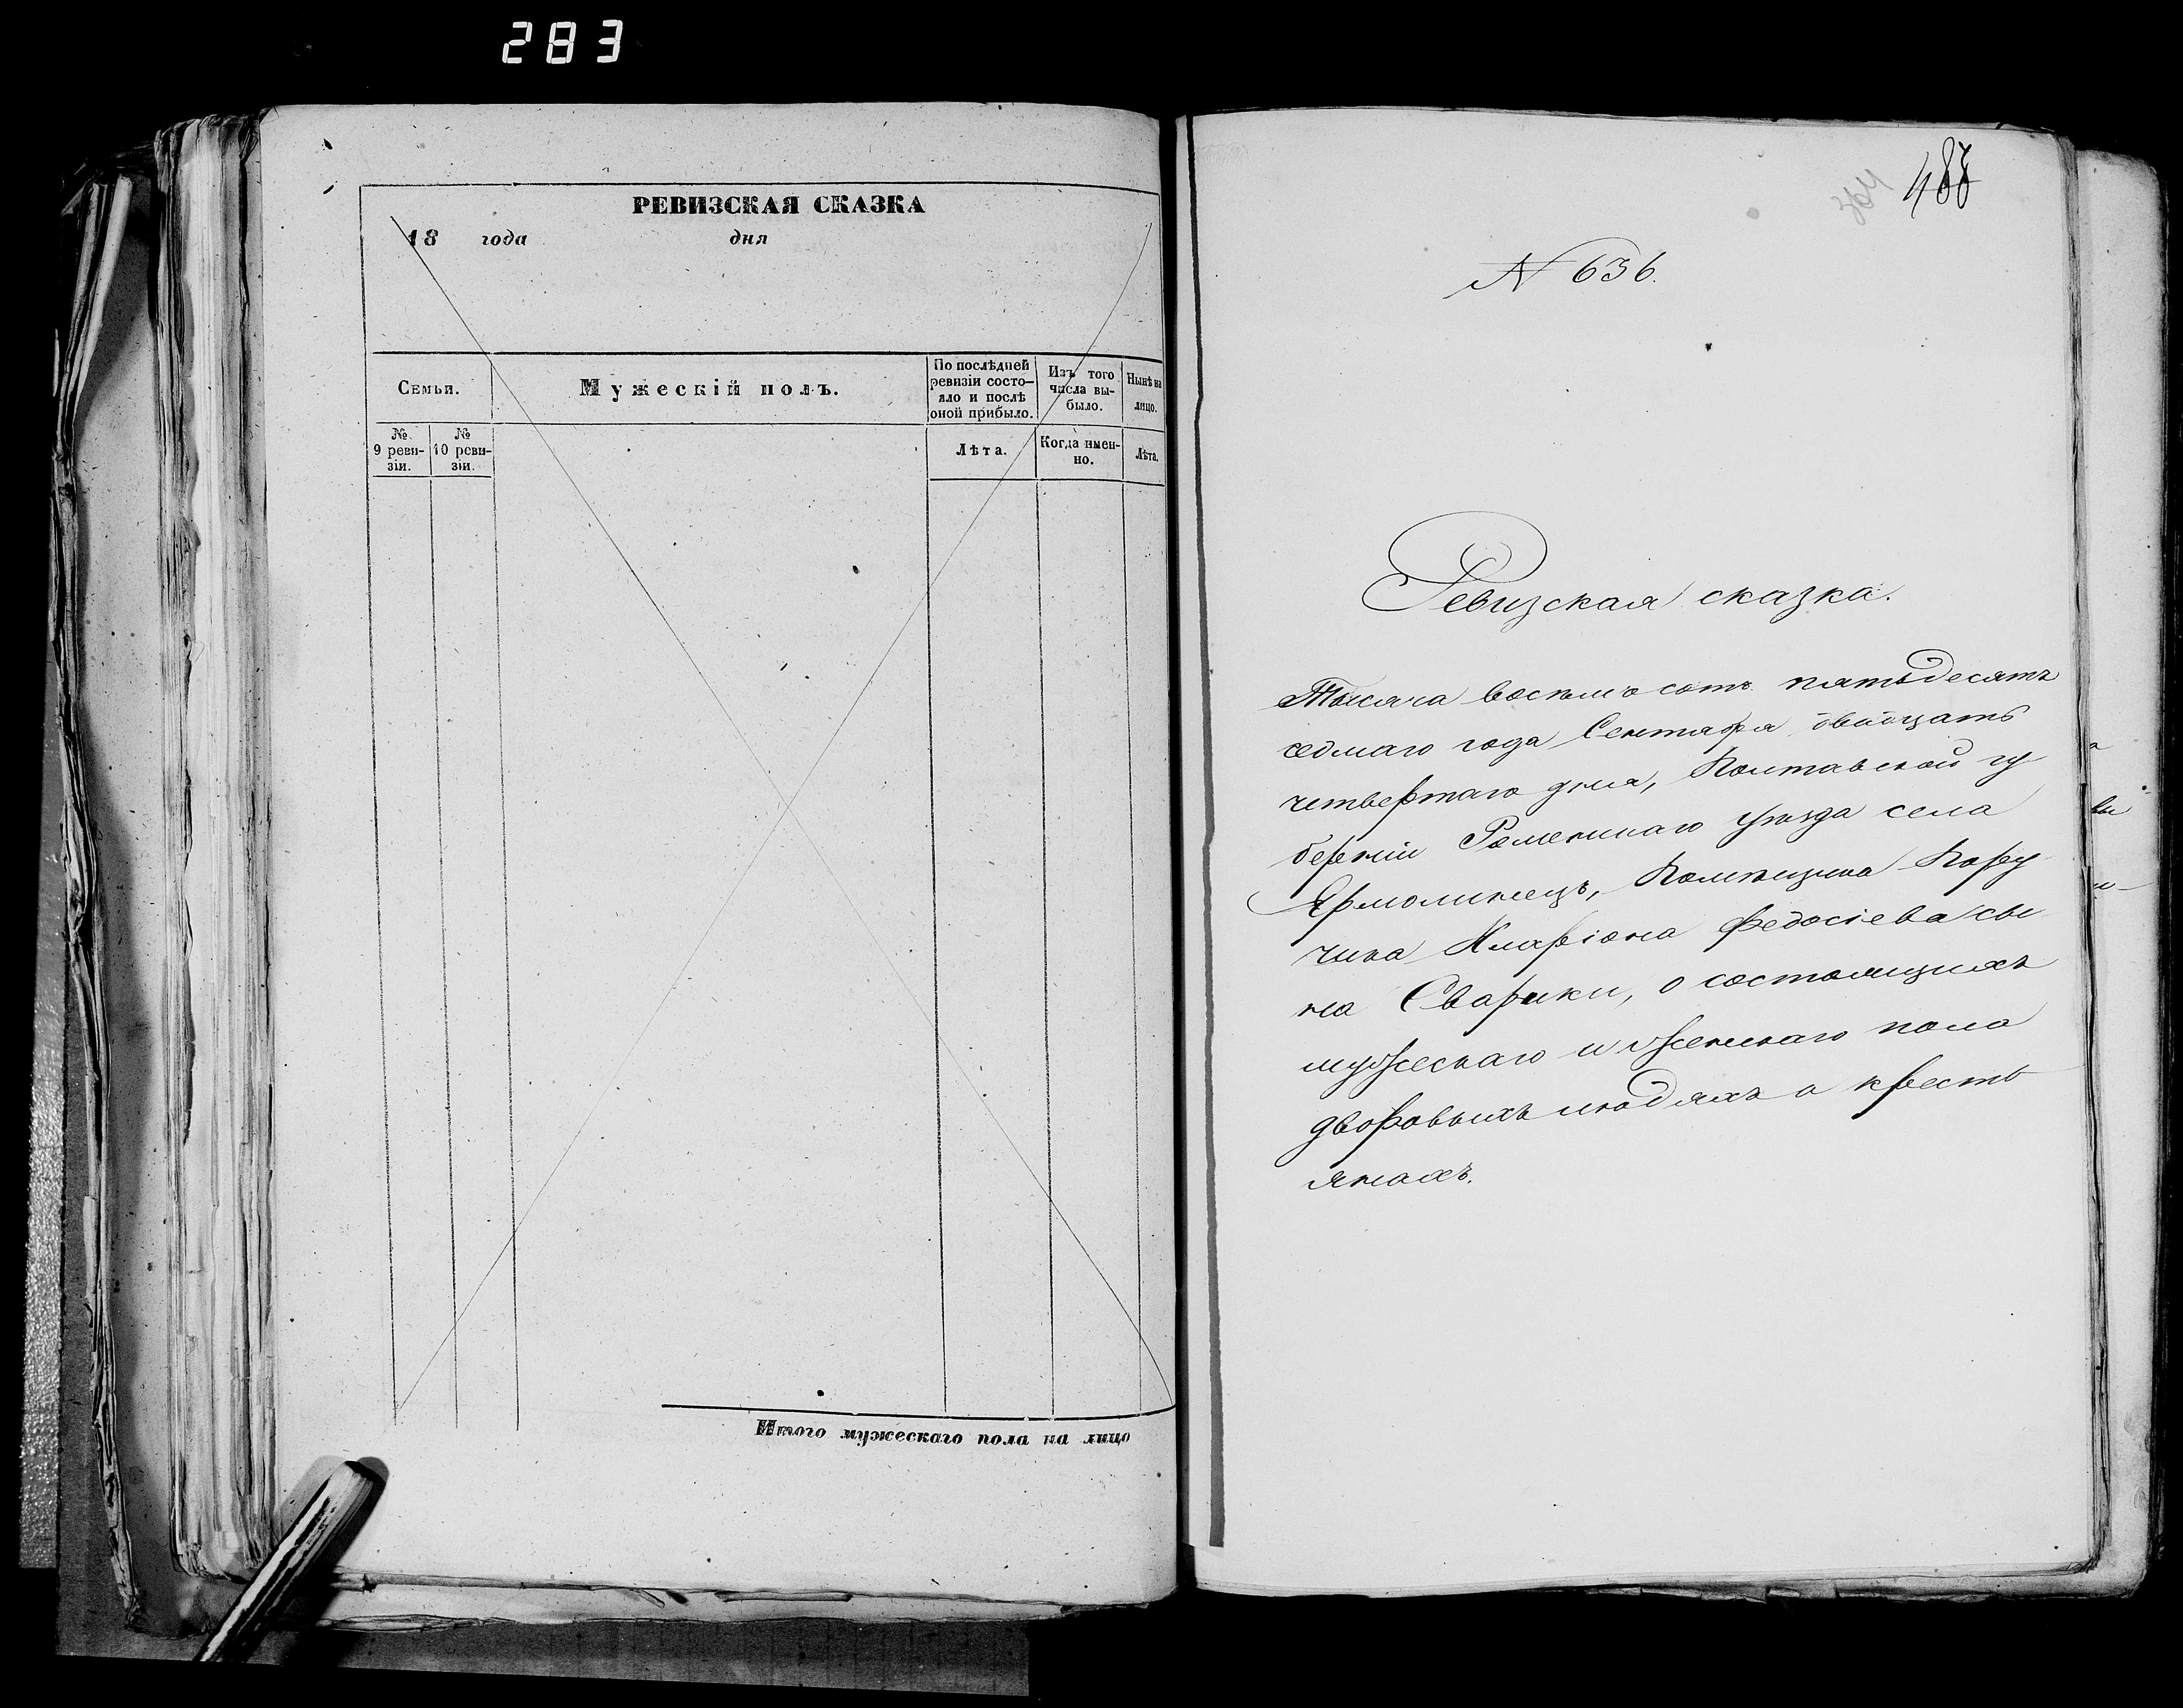 283
РЕВИЗСКАЯ СКАЗКА
18 года дня
Семьи.
Мужескій полъ.
По послѣдней
ревизіи состо-
яло и послѣ
оной прибыло.
Изъ того
числа вы-
было.
Нынѣ на
лицо.
№
9 реви-
зіи.
№
10 реви-
зіи.
Лѣта.
Когда имен-
но.
Лѣта.
Итого мужескаго пола на лицо
364
N 636.
Ревизская сказка.
Тысяча восемьсотъ пятьдесятъ
седмаго года Сентября двадцать
четвертаго дня, Полтавской гу
берніи Роменскаго уѣзда села
Ярмолинецъ, Помѣщика Пору
чика Иларіона Федосіева сы
на Сварики, о состоящихъ
мужескаго и женскаго пола
дворовыхъ людяхъ и кресть
янахъ.